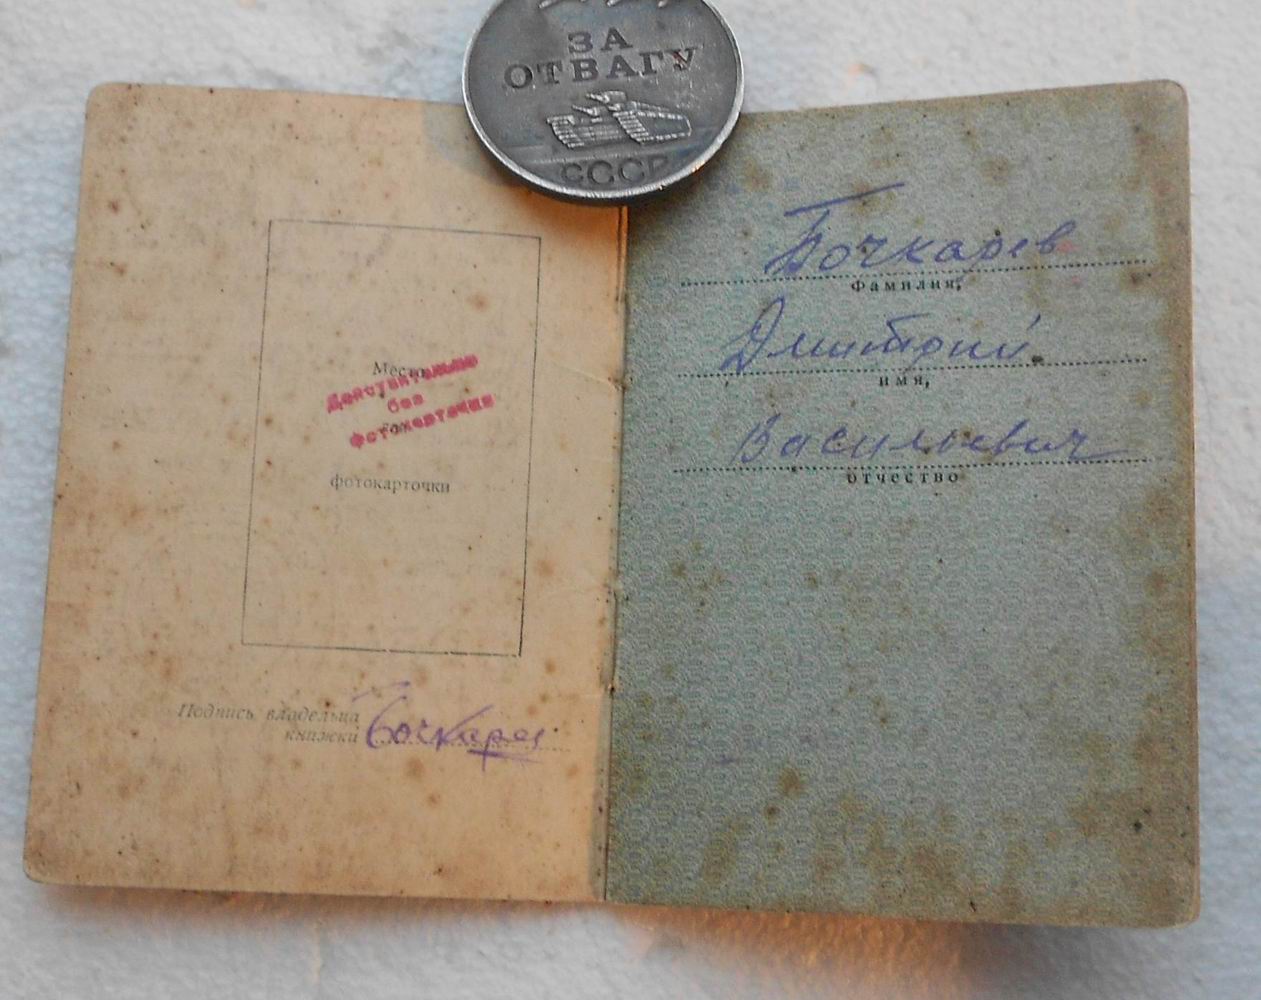 ЗА
ОТВАГУ
СССР
Место
Действительно
без
для
фотокарточки
фотокарточки
Подпись владельца
книжки
Бочкарев
Бочкарев
фамилия,
Дмитрий
имя,
Васильевич
отчество